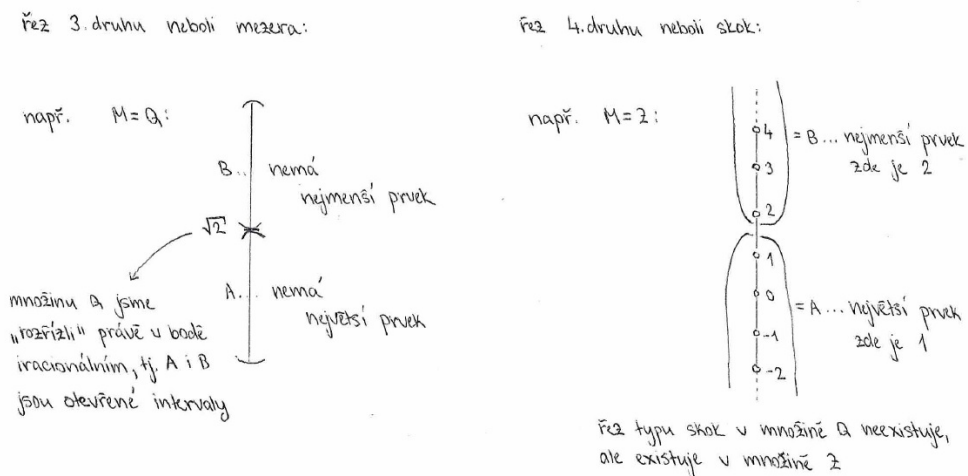 řez 3. druhu neboli mezera:
např. M=Q:
B... nemá
nejmenší prvek
√2
A... nemá
největší prvek
množinu Q jsme
„rozřízli“ právě v bodě
iracionálním, tj. A i B
jsou otevřené intervaly
řez 4. druhu neboli skok:
např. M=Z:
4
3
2
= B... nejmenší prvek
zde je 2
1
0
-1
-2
= A... největší prvek
zde je 1
řez typu skok v množině Q neexistuje,
ale existuje v množině Z